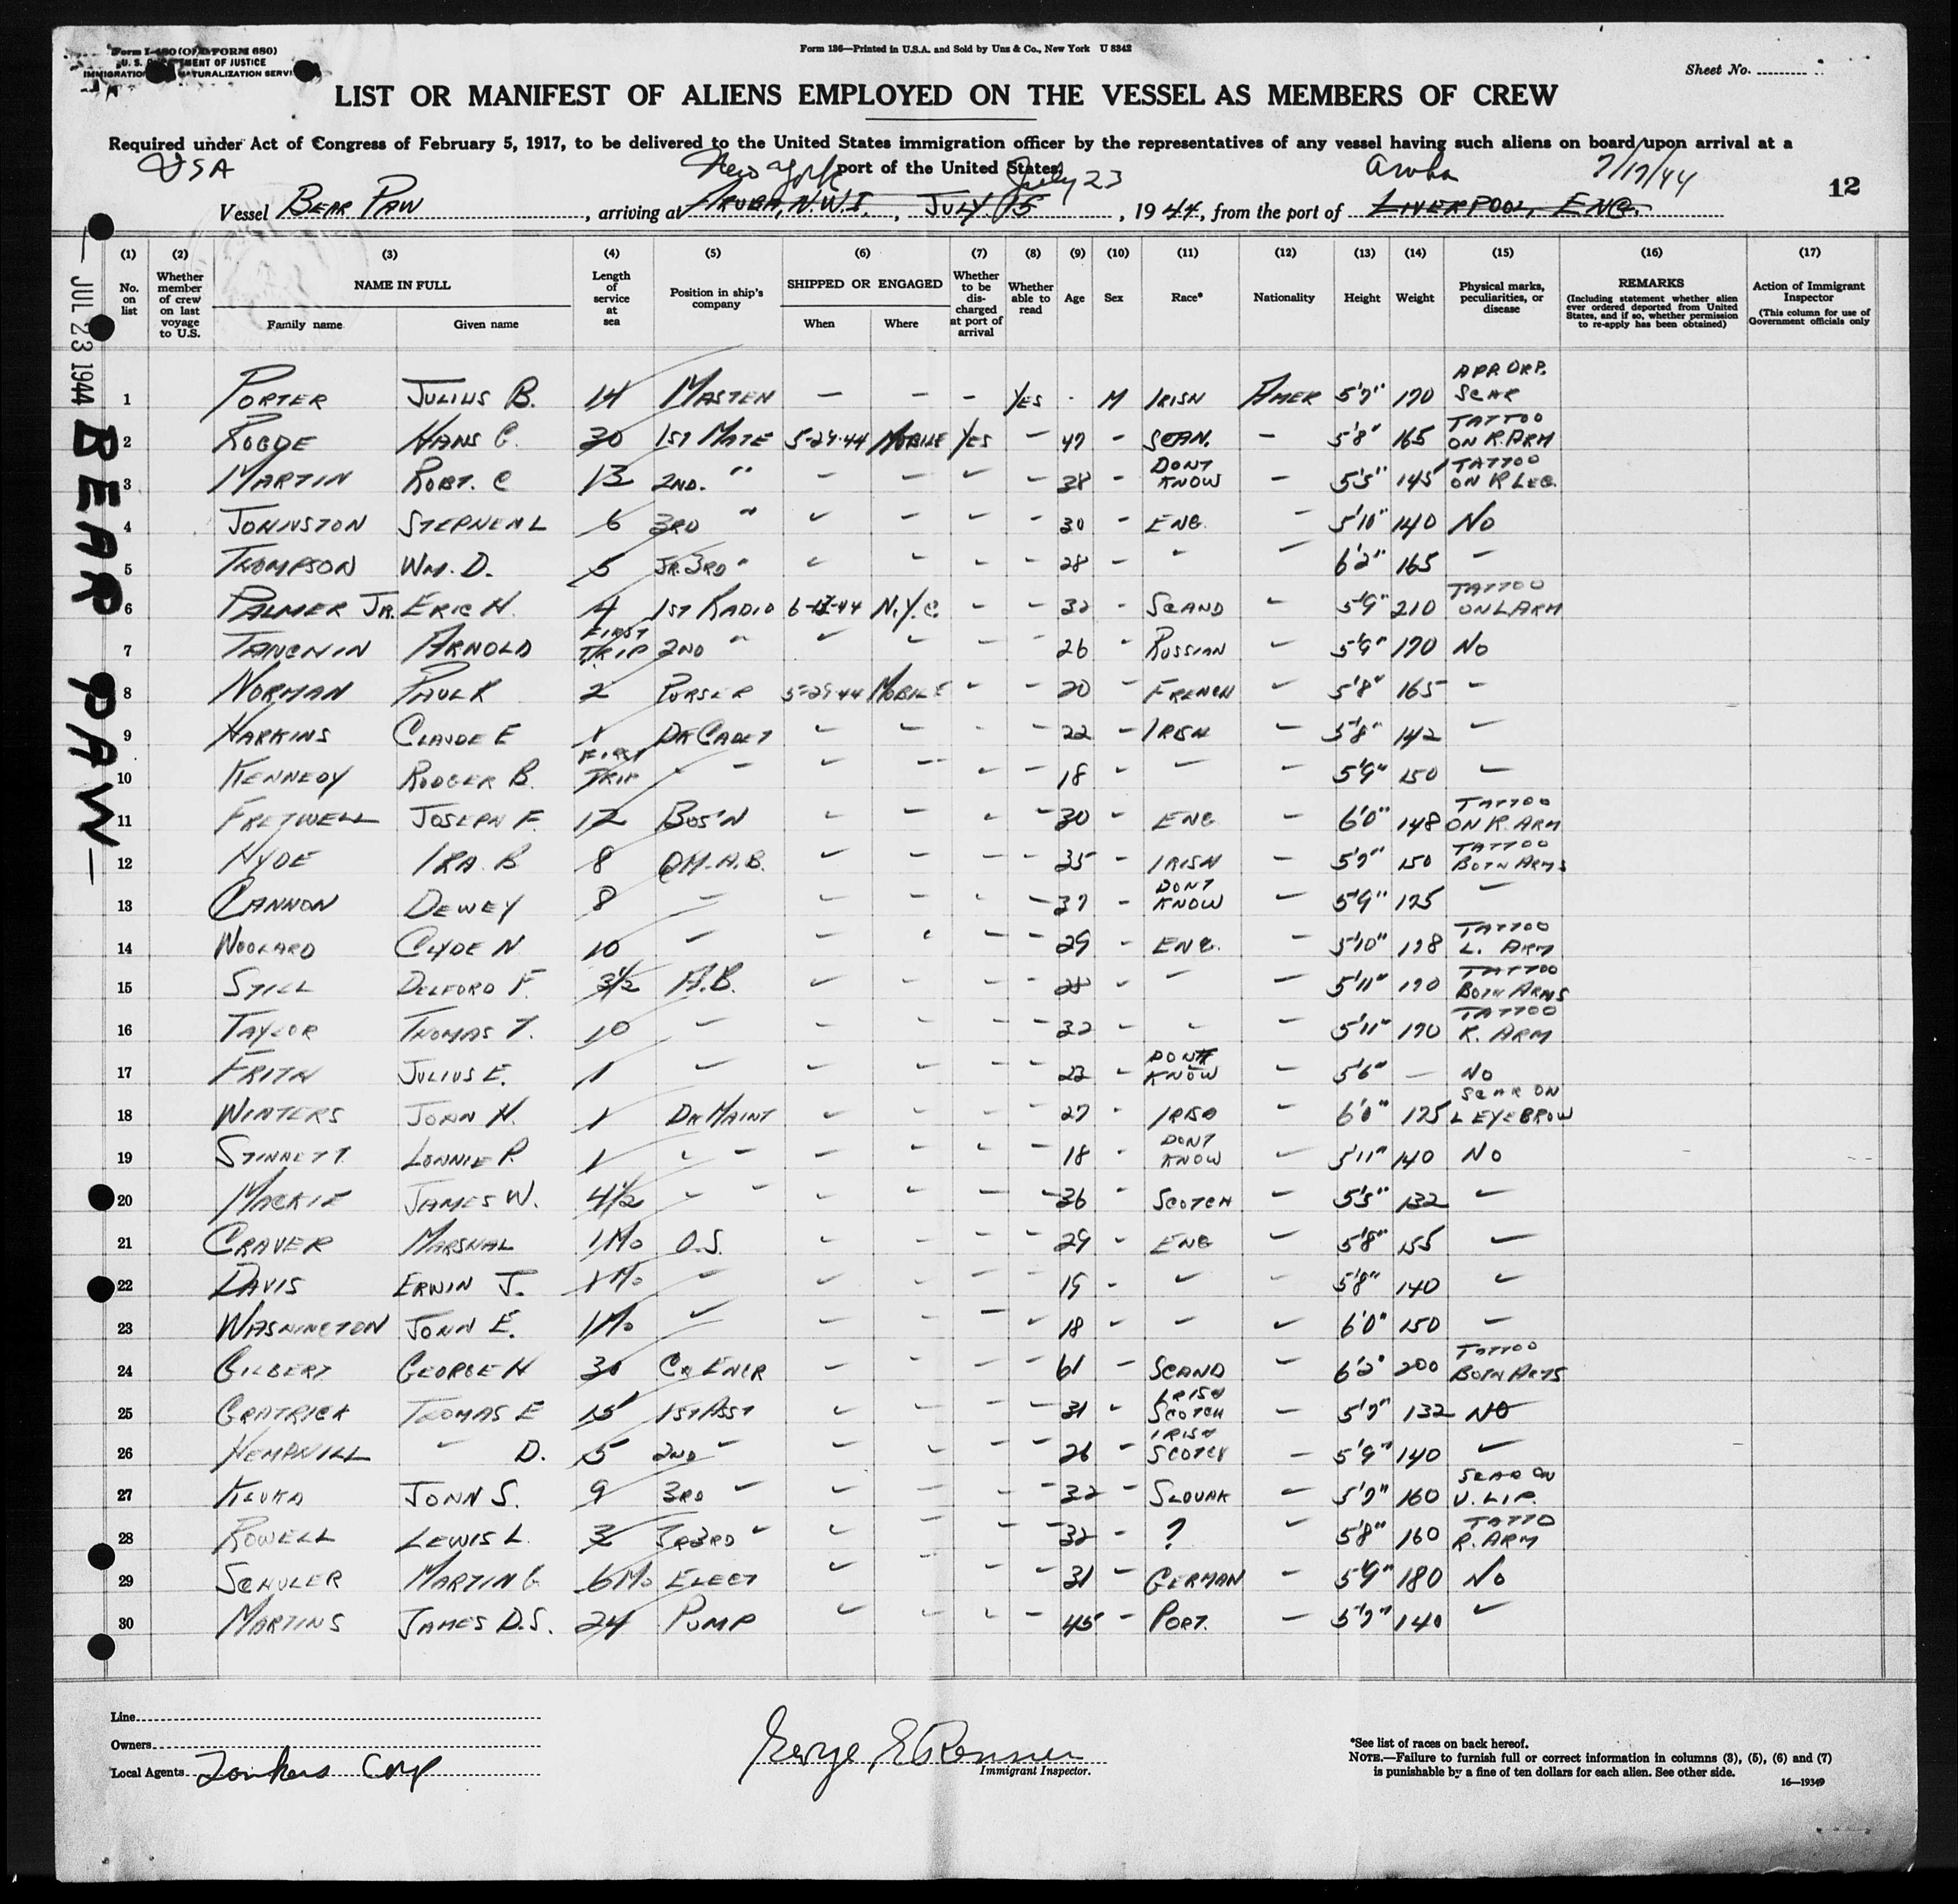 Form I-480 (Old FORM 680)
U. S. DEPARTMENT OF JUSTICE
IMMIGRATION NATURALIZATION SERVICE
Form 136—Printed in U.S.A. and Sold by Unz & Co., New York U 8342
Sheet No.
LIST OR MANIFEST OF ALIENS EMPLOYED ON THE VESSEL AS MEMBERS OF CREW
Required under Act of Congress of February 5, 1917, to be delivered to the United States immigration officer by the representatives of any vessel having such aliens on board upon arrival at a
port of the United States
USA New York July 23 Aruba 7/17/44
Vessel BEAR PAW, arriving at ARUBA, N.W.I., JULY 15, 1944, from the port of LIVERPOOL, ENG.
12
JUL 23 1944 BEAR PAW—
(1) No. on list (2) Whether member of crew on last voyage to U.S. (3) NAME IN FULL Family name Given name (4) Length of service at sea (5) Position in ship's company (6) SHIPPED OR ENGAGED When Where (7) Whether to be discharged at port of arrival (8) Whether able to read (9) Age (10) Sex (11) Race* (12) Nationality (13) Height (14) Weight (15) Physical marks, peculiarities, or disease (16) REMARKS (Including statement whether alien ever ordered deported from United States, and if so, whether permission to re-apply has been obtained) (17) Action of Immigrant Inspector (This column for use of Government officials only
1 PORTER JULIUS B. 14 MASTER — — — YES M IRISH AMER 5'7" 170 SCAR
2 ROGDE HANS G. 30 1ST MATE 5-29-44 MOBILE YES — 47 — SCAN. — 5'8" 165 TATTOO ON R. ARM
3 MARTIN ROBT. C 13 2ND. " — — — — 38 — DONT KNOW — 5'5" 145 TATTOO ON R LEG.
4 JOHNSTON STEPHEN L 6 3RD " — — — — 30 — ENG. — 5'10" 140 NO
5 THOMPSON WM. D. 5 JR. 3RD " — — — — 28 — " — 6'2" 165 —
6 PALMER JR. ERIC H. 4 1ST RADIO 6-17-44 N.Y.C. — — 32 — SCAND — 5'9" 210 TATTOO ON L ARM
7 ARNOLD FIRST TRIP 2ND " — — — — 26 — RUSSIAN — 5'9" 170 NO
8 NORMAN PAUL R 2 PURSER 5-29-44 MOBILE — — 20 — FRENCH — 5'8" 165 —
9 HARKINS CLAUDE E 1 DK CADET — — — — 22 — IRISH — 5'8" 142 —
10 KENNEDY RODGER B. FIRST TRIP — — — — — 18 — — — 5'9" 150 —
11 FRETWELL JOSEPH F. 12 BOS'N — — — — 30 — ENG — 6'0" 148 TATTOO ON R. ARM
12 HYDE IRA B 8 QM. A.B. — — — — 35 — IRISH — 5'7" 150 TATTOO BOTH ARMS
13 CANNON DEWEY 8 — — — — — 37 — DONT KNOW — 5'9" 175 —
14 WOOLARD CLYDE N 10 — — — — — 29 — ENG. — 5'10" 178 TATTOO L. ARM
15 STILL DELFORD F. 3½ A.B. — — — — 28 — — — 5'11" 170 TATTOO BOTH ARMS
16 TAYLOR THOMAS T. 10 — — — — — 32 — — — 5'11" 170 TATTOO R. ARM
17 FRITH JULIUS E. 1 — — — — — 23 — DONT KNOW — 5'6" — NO
18 WINTERS JOHN H. 1 DK MAINT — — — — 27 — IRISH — 6'0" 175 SCAR ON L EYEBROW
19 STINNETT LONNIE P. 1 — — — — — 18 — DONT KNOW — 5'11" 140 NO
20 MACKIE JAMES W. 4½ — — — — — 36 — SCOTCH — 5'5" 132 —
21 CRAVER MARSHAL 1 MO O.S. — — — — 29 — ENG — 5'8" 155 —
22 DAVIS ERWIN J. 1 MO. — — — — — 19 — — — 5'8" 140 —
23 WASHINGTON JOHN E. 1 MO. — — — — — 18 — — — 6'0" 150 —
24 GILBERT GEORGE H 30 CH ENGR — — — — 61 — SCAND — 6'2" 200 TATTOO BOTH ARMS
25 GRATRICK THOMAS E 15 1ST ASST — — — — 31 — IRISH SCOTCH — 5'7" 132 NO
26 HEMPHILL — D. 5 2ND — — — — — 26 — IRISH SCOTCH — 5'9" 140 —
27 KLUKA JOHN S. 9 3RD — — — — — 32 — SLOVAK — 5'7" 160 SCAR ON U. LIP.
28 ROWELL LEWIS L. 3 JR 3RD " — — — — 32 — ? — 5'8" 160 TATTO R. ARM
29 SCHULER MARTIN G 6 MO ELECT — — — — 31 — GERMAN — 5'9" 180 NO
30 MARTINS JAMES D.S. 24 PUMP — — — — 45 — PORT. — 5'7" 140 —
Line
Owners
Local Agents Tankers Corp
Immigrant Inspector.
*See list of races on back hereof.
NOTE.—Failure to furnish full or correct information in columns (3), (5), (6) and (7)
is punishable by a fine of ten dollars for each alien. See other side.
16—19349